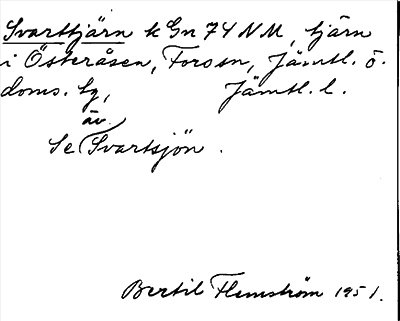 Svarttjärn k Gn 74 NM, tjärn
i Österåsen, Fors sn, Jämtl. ö.
doms. tg, Jämtl. l.
äv.
Se Svartsjön.
Bertil Flemström 1951.